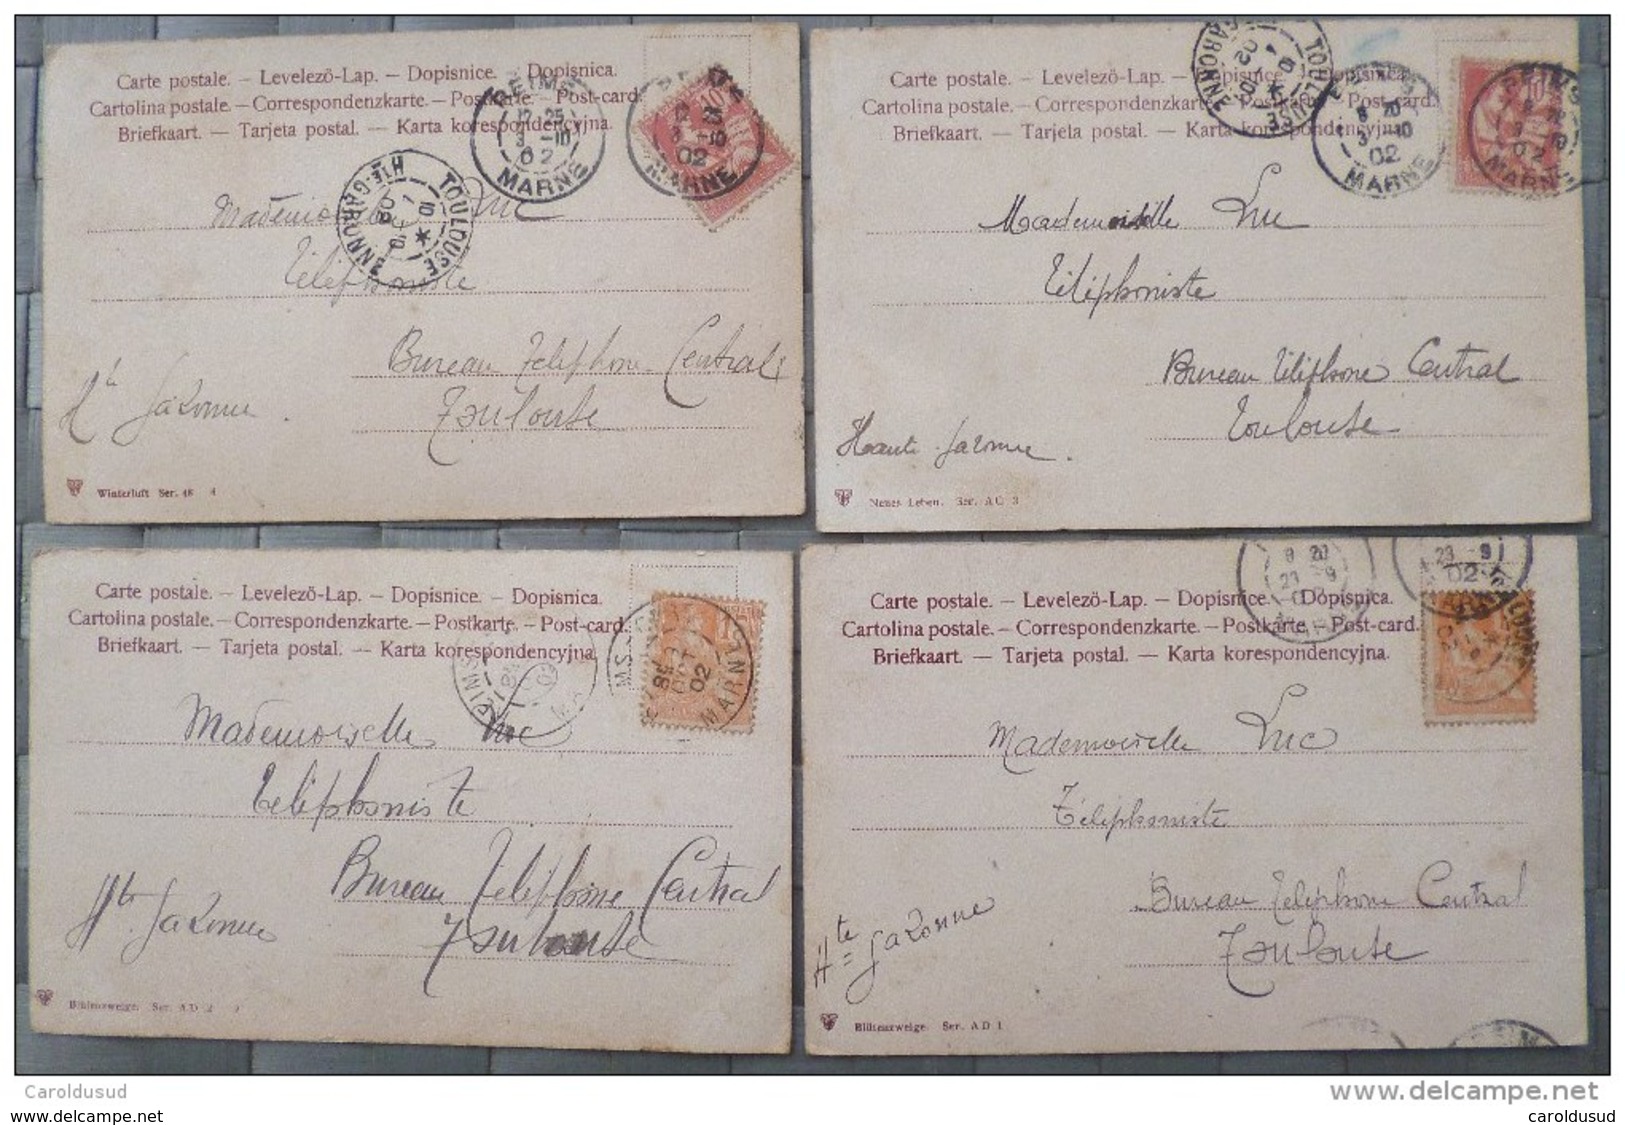 Carte postale. – Levelezö-Lap. – Dopisnice. – Dopisnica.
Cartolina postale. – Correspondenzkarte. – Postkarte. – Post-card.
Briefkaart. – Tarjeta postal. – Karta korespondencyjna.
REIMS
12 25
3 -10
02
MARNE
12 25
3 -10
02
MARNE
TOULOUSE
HTE-GARONNE
Mademoiselle Luc
Téléphoniste
Bureau Téléphone Central
Toulouse
Hte Garonne.
Winterluft Ser. 48 4
Carte postale. – Levelezö-Lap. – Dopisnice. – Dopisnica.
Cartolina postale. – Correspondenzkarte. – Postkarte. – Post-card.
Briefkaart. – Tarjeta postal. – Karta korespondencyjna.
TOULOUSE
GARONNE
3 -10
02
MARNE
REIMS
02
MARNE
Mademoiselle Luc
Téléphoniste
Bureau Téléphone Central
Toulouse
Haute Garonne.
Neues Leben. Ser. AC 3
Carte postale. – Levelezö-Lap. – Dopisnice. – Dopisnica.
Cartolina postale. – Correspondenzkarte. – Postkarte. – Post-card.
Briefkaart. – Tarjeta postal. – Karta korespondencyjna.
02
MARNE
Mademoiselle Luc
Téléphoniste
Bureau Téléphone Central
Toulouse
Hte Garonne
Blütenzweige. Ser. AD 2
Carte postale. – Levelezö-Lap. – Dopisnice. – Dopisnica.
Cartolina postale. – Correspondenzkarte. – Postkarte. – Post-card.
Briefkaart. – Tarjeta postal. – Karta korespondencyjna.
9 20
23 -9
23 -9
02
Mademoiselle Luc
Téléphoniste
Bureau Téléphone Central
Toulouse
Hte Garonne
Blütenzweige. Ser. AD 1
www.delcampe.net
Caroldusud
caroldusud
caroldusud